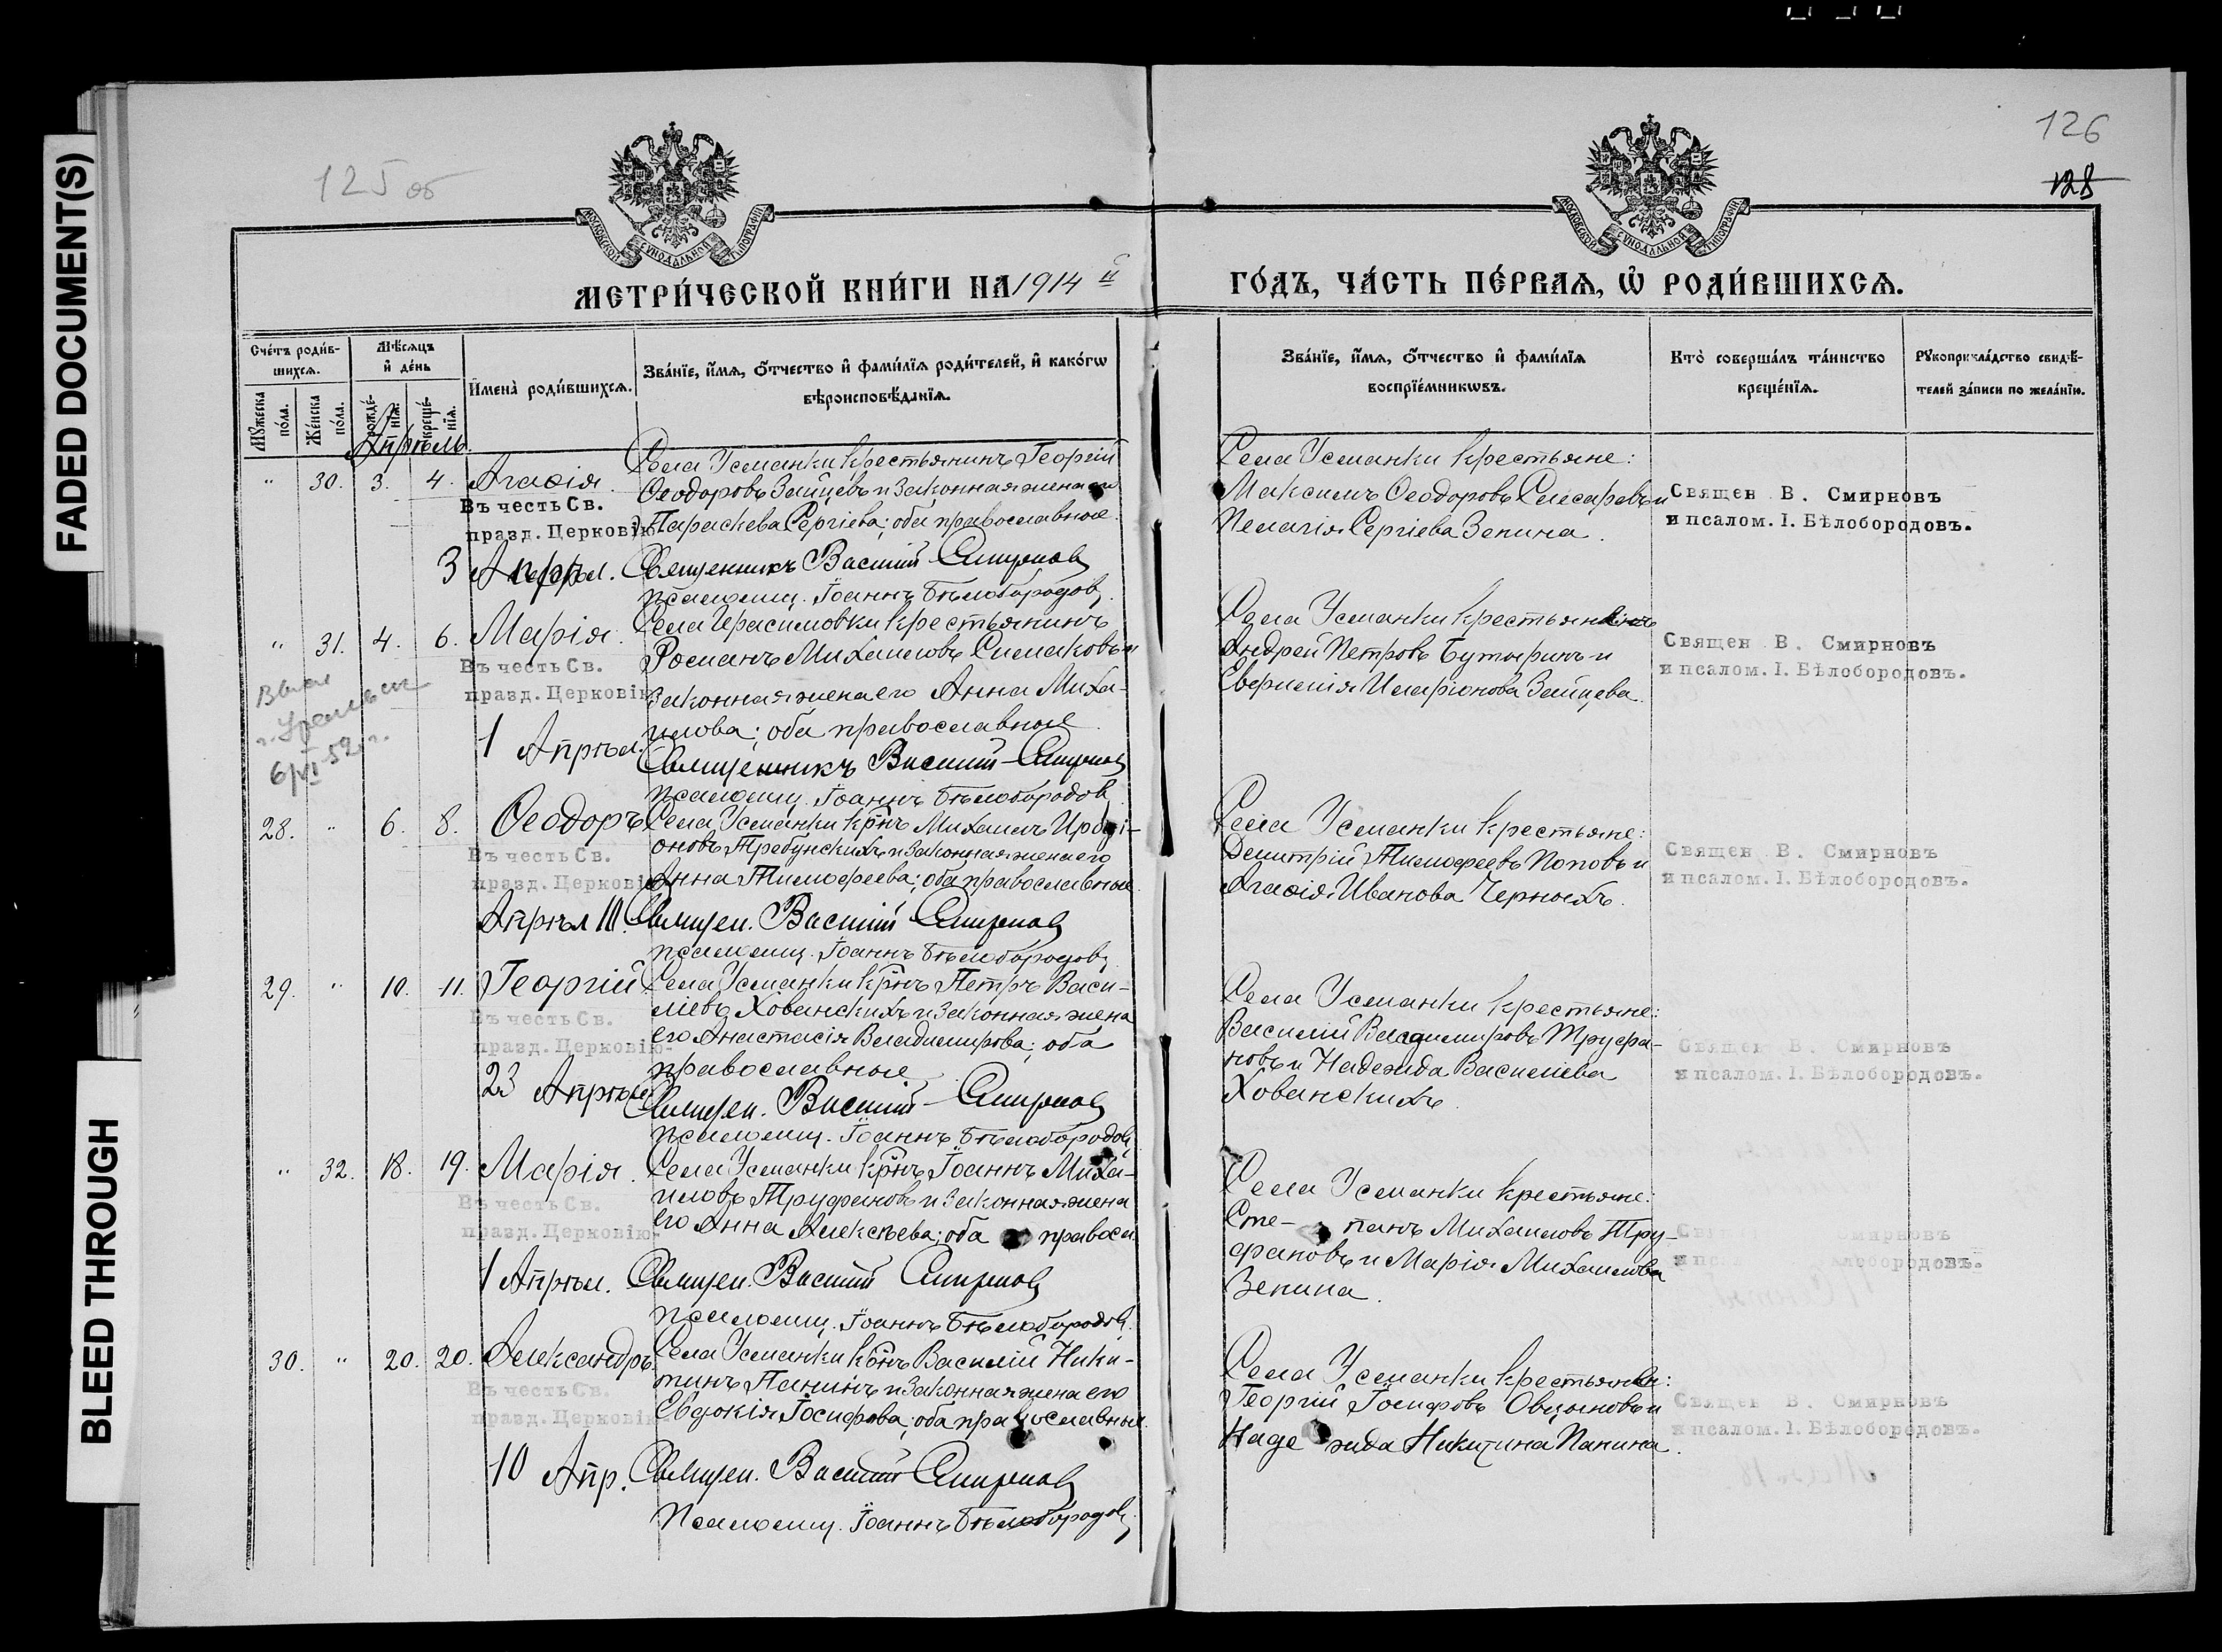 FADED DOCUMENT(S)
BLEED THROUGH
125 об
126
128
МОСКОВСКОЙ СѴНОДАЛЬНОЙ ТИПОГРАФІИ
МОСКОВСКОЙ СѴНОДАЛЬНОЙ ТИПОГРАФІИ
МЕТРИ́ЧЕСКОЙ КНИ́ГИ НА 1914 й
ГО́ДЪ, ЧА́СТЬ ПЕ́РВАѦ, Ѡ҆ РОДИ́ВШИХСѦ.
Сче́тъ роди́в-
шихсѧ.
Мꙋ́жеска
по́ла.
Же́нска
по́ла.
Мѣ́сѧцъ
и҆ де́нь
рожде́-
нїѧ.
креще́-
нїѧ.
И҆мена̀ роди́вшихсѧ.
Зва́нїе, и҆́мѧ, ѻ҆́тчество и҆ фами́лїѧ роди́телей, и҆ како́гѡ
вѣроисповѣ́данїѧ.
Зва́нїе, и҆́мѧ, ѻ҆́тчество и҆ фами́лїѧ
воспрїе́мникѡвъ.
Кто̀ соверша́лъ та́инство
креще́нїѧ.
Рꙋкоприкла́дство свидѣ́-
телей за́писи по жела́нїю.
Апрѣль.
" 30. 3. 4. Агаѳія.
Въ честь Св.
празд. Церковію
Села Усманки крестьянинъ Георгій
Ѳеодоровъ Зайцевъ и законная жена его
Параскева Сергіева; оба православные.
3 Апрѣл. Священникъ Василій Смирновъ
Псаломщ. Іоаннъ Бѣлобородовъ.
Села Усманки крестьяне:
Максимъ Ѳеодоровъ Слесаревъ и
Пелагія Сергіева Зенина.
Священ В. Смирновъ
и псалом. І. Бѣлобородовъ.
" 31. 4. 6. Марія.
Въ честь Св.
празд. Церковію
Села Ирасимовки крестьянинъ
Романъ Михаиловъ Симаковъ и
законная жена его Анна Миха-
илова; оба православные
1 Апрѣл. Священникъ Василій Смирновъ
Псаломщ. Іоаннъ Бѣлобородовъ
6/VI-52 г.
Села Усманки крестьянинъ
Андрей Петровъ Бутыринъ и
Евфимія Иларіонова Зайцева.
Священ В. Смирновъ
и псалом. І. Бѣлобородовъ.
28. " 6. 8. Ѳеодоръ
Въ честь Св.
празд. Церковію
Села Усманки крнъ Михаилъ Иродi-
оновъ Требунскихъ и законная жена его
Анна Тимофеева; оба православные.
Апрѣл 10. Священ. Василій Смирновъ
Псаломщ. Іоаннъ Бѣлобородовъ
Села Усманки крестьяне:
Димитрій Тимофеевъ Поповъ и
Агаѳія Иванова Черныхъ.
Священ В. Смирновъ
и псалом. І. Бѣлобородовъ.
29. " 10. 11. Георгій
Въ честь Св.
празд. Церковію-
Села Усманки крнъ Петръ Васи-
ліевъ Хованскихъ и законная жена
его Анастасія Владимирова; оба
православные
23 Апрѣл. Священ. Василій Смирновъ
Псаломщ. Іоаннъ Бѣлобородовъ
Села Усманки крестьяне:
Василій Владимировъ Труфа-
новъ и Надежда Василіева
Хованскихъ.
Священ В. Смирновъ
и псалом. І. Бѣлобородовъ.
" 32. 18. 19. Марія.
Въ честь Св.
празд. Церковію-
Села Усманки крнъ Іоаннъ Миха-
иловъ Труфановъ и законная жена
его Анна Алексѣева; оба правосл.
1 Апрѣл. Священ. Василій Смирновъ
Псаломщ. Іоаннъ Бѣлобородовъ.
Села Усманки крестьяне:
Сте- панъ Михаиловъ Тру-
фановъ и Марія Михаилова
Зенина.
Смирновъ
и псалом. Бѣлобородовъ.
30. " 20. 20. Александръ
Въ честь Св.
празд. Церковію
Села Усманки крнъ Василій Ники-
тинъ Панинъ и законная жена его
Евдокія Іосифова; оба православные.
10 Апр. Священ. Василій Смирновъ
Псаломщ. Іоаннъ Бѣлобородовъ
Села Усманки крестьяне:
Георгій Іосифовъ Овцыновъ и
Наде жда Никитина Панина.
Священ В. Смирновъ
и псалом. І. Бѣлобородовъ.